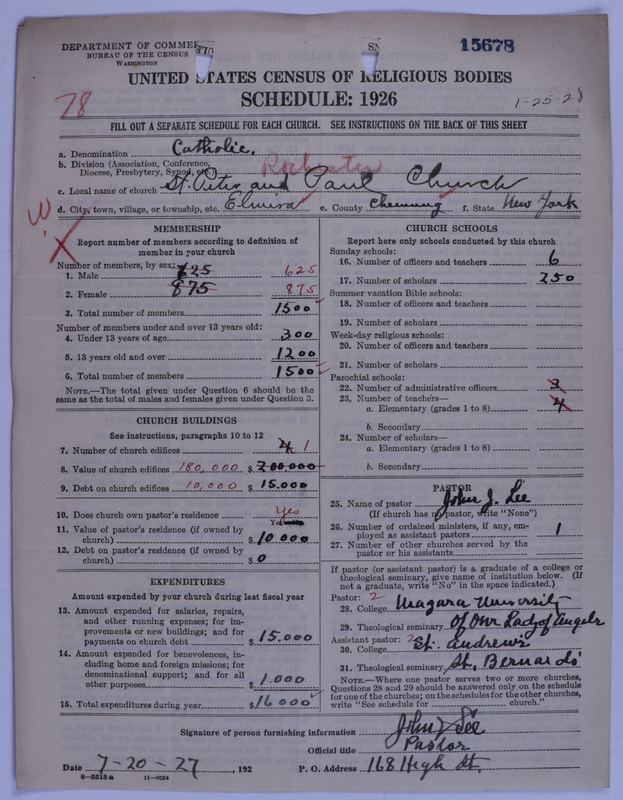 DEPARTMENT OF COMMERCE
BUREAU OF THE CENSUS
WASHINGTON
15678
UNITED STATES CENSUS OF RELIGIOUS BODIES
SCHEDULE: 1926
78
1-25-28
FILL OUT A SEPARATE SCHEDULE FOR EACH CHURCH. SEE INSTRUCTIONS ON THE BACK OF THIS SHEET
a. Denomination Catholic.
b. Division (Association, Conference, Diocese, Presbytery, Synod, etc. Rochester
c. Local name of church St. Peter and Paul Church
d. City, town, village, or township, etc. Elmira e. County Chemung f. State New York
MEMBERSHIP
Report number of members according to definition of member in your church
Number of members, by sex:
1. Male 625 625
2. Female 875 875
3. Total number of members 1500
Number of members under and over 13 years old:
4. Under 13 years of age 300
5. 13 years old and over 1200
6. Total number of members 1500
NOTE.—The total given under Question 6 should be the same as the total of males and females given under Question 3.
CHURCH BUILDINGS
See instructions, paragraphs 10 to 12
7. Number of church edifices 4 1
8. Value of church edifices 180,000 $ 200000
9. Debt on church edifices 10,000 $ 15.000
10. Does church own pastor's residence Yes
11. Value of pastor's residence (if owned by church) $ 10000
12. Debt on pastor's residence (if owned by church) $ 0
EXPENDITURES
Amount expended by your church during last fiscal year
13. Amount expended for salaries, repairs, and other running expenses; for improvements or new buildings; and for payments on church debt $ 15.000
14. Amount expended for benevolences, including home and foreign missions; for denominational support; and for all other purposes $ 1.000
15. Total expenditures during year $ 16000
CHURCH SCHOOLS
Report here only schools conducted by this church
Sunday schools:
16. Number of officers and teachers 6
17. Number of scholars 250
Summer vacation Bible schools:
18. Number of officers and teachers
19. Number of scholars
Week-day religious schools:
20. Number of officers and teachers
21. Number of scholars
Parochial schools:
22. Number of administrative officers 3
23. Number of teachers—
a. Elementary (grades 1 to 8) 4
b. Secondary
24. Number of scholars—
a. Elementary (grades 1 to 8)
b. Secondary
PASTOR
25. Name of pastor John J. Lee
(If church has no pastor, write "None")
26. Number of ordained ministers, if any, employed as assistant pastors 1
27. Number of other churches served by the pastor or his assistants
If pastor (or assistant pastor) is a graduate of a college or theological seminary, give name of institution below. (If not a graduate, write "No" in the space indicated.)
Pastor: 2
28. College Niagara University
29. Theological seminary Of Our Lady of Angels
Assistant pastor: 2
30. College St. Andrews
31. Theological seminary St. Bernards'
NOTE.—Where one pastor serves two or more churches, Questions 28 and 29 should be answered only on the schedule for one of the churches; on the schedules for the other churches, write "See schedule for church."
Signature of person furnishing information John J Lee
Official title Pastor
Date 7-20-27, 192 P. O. Address 168 High St.
8-5518a 11-9054